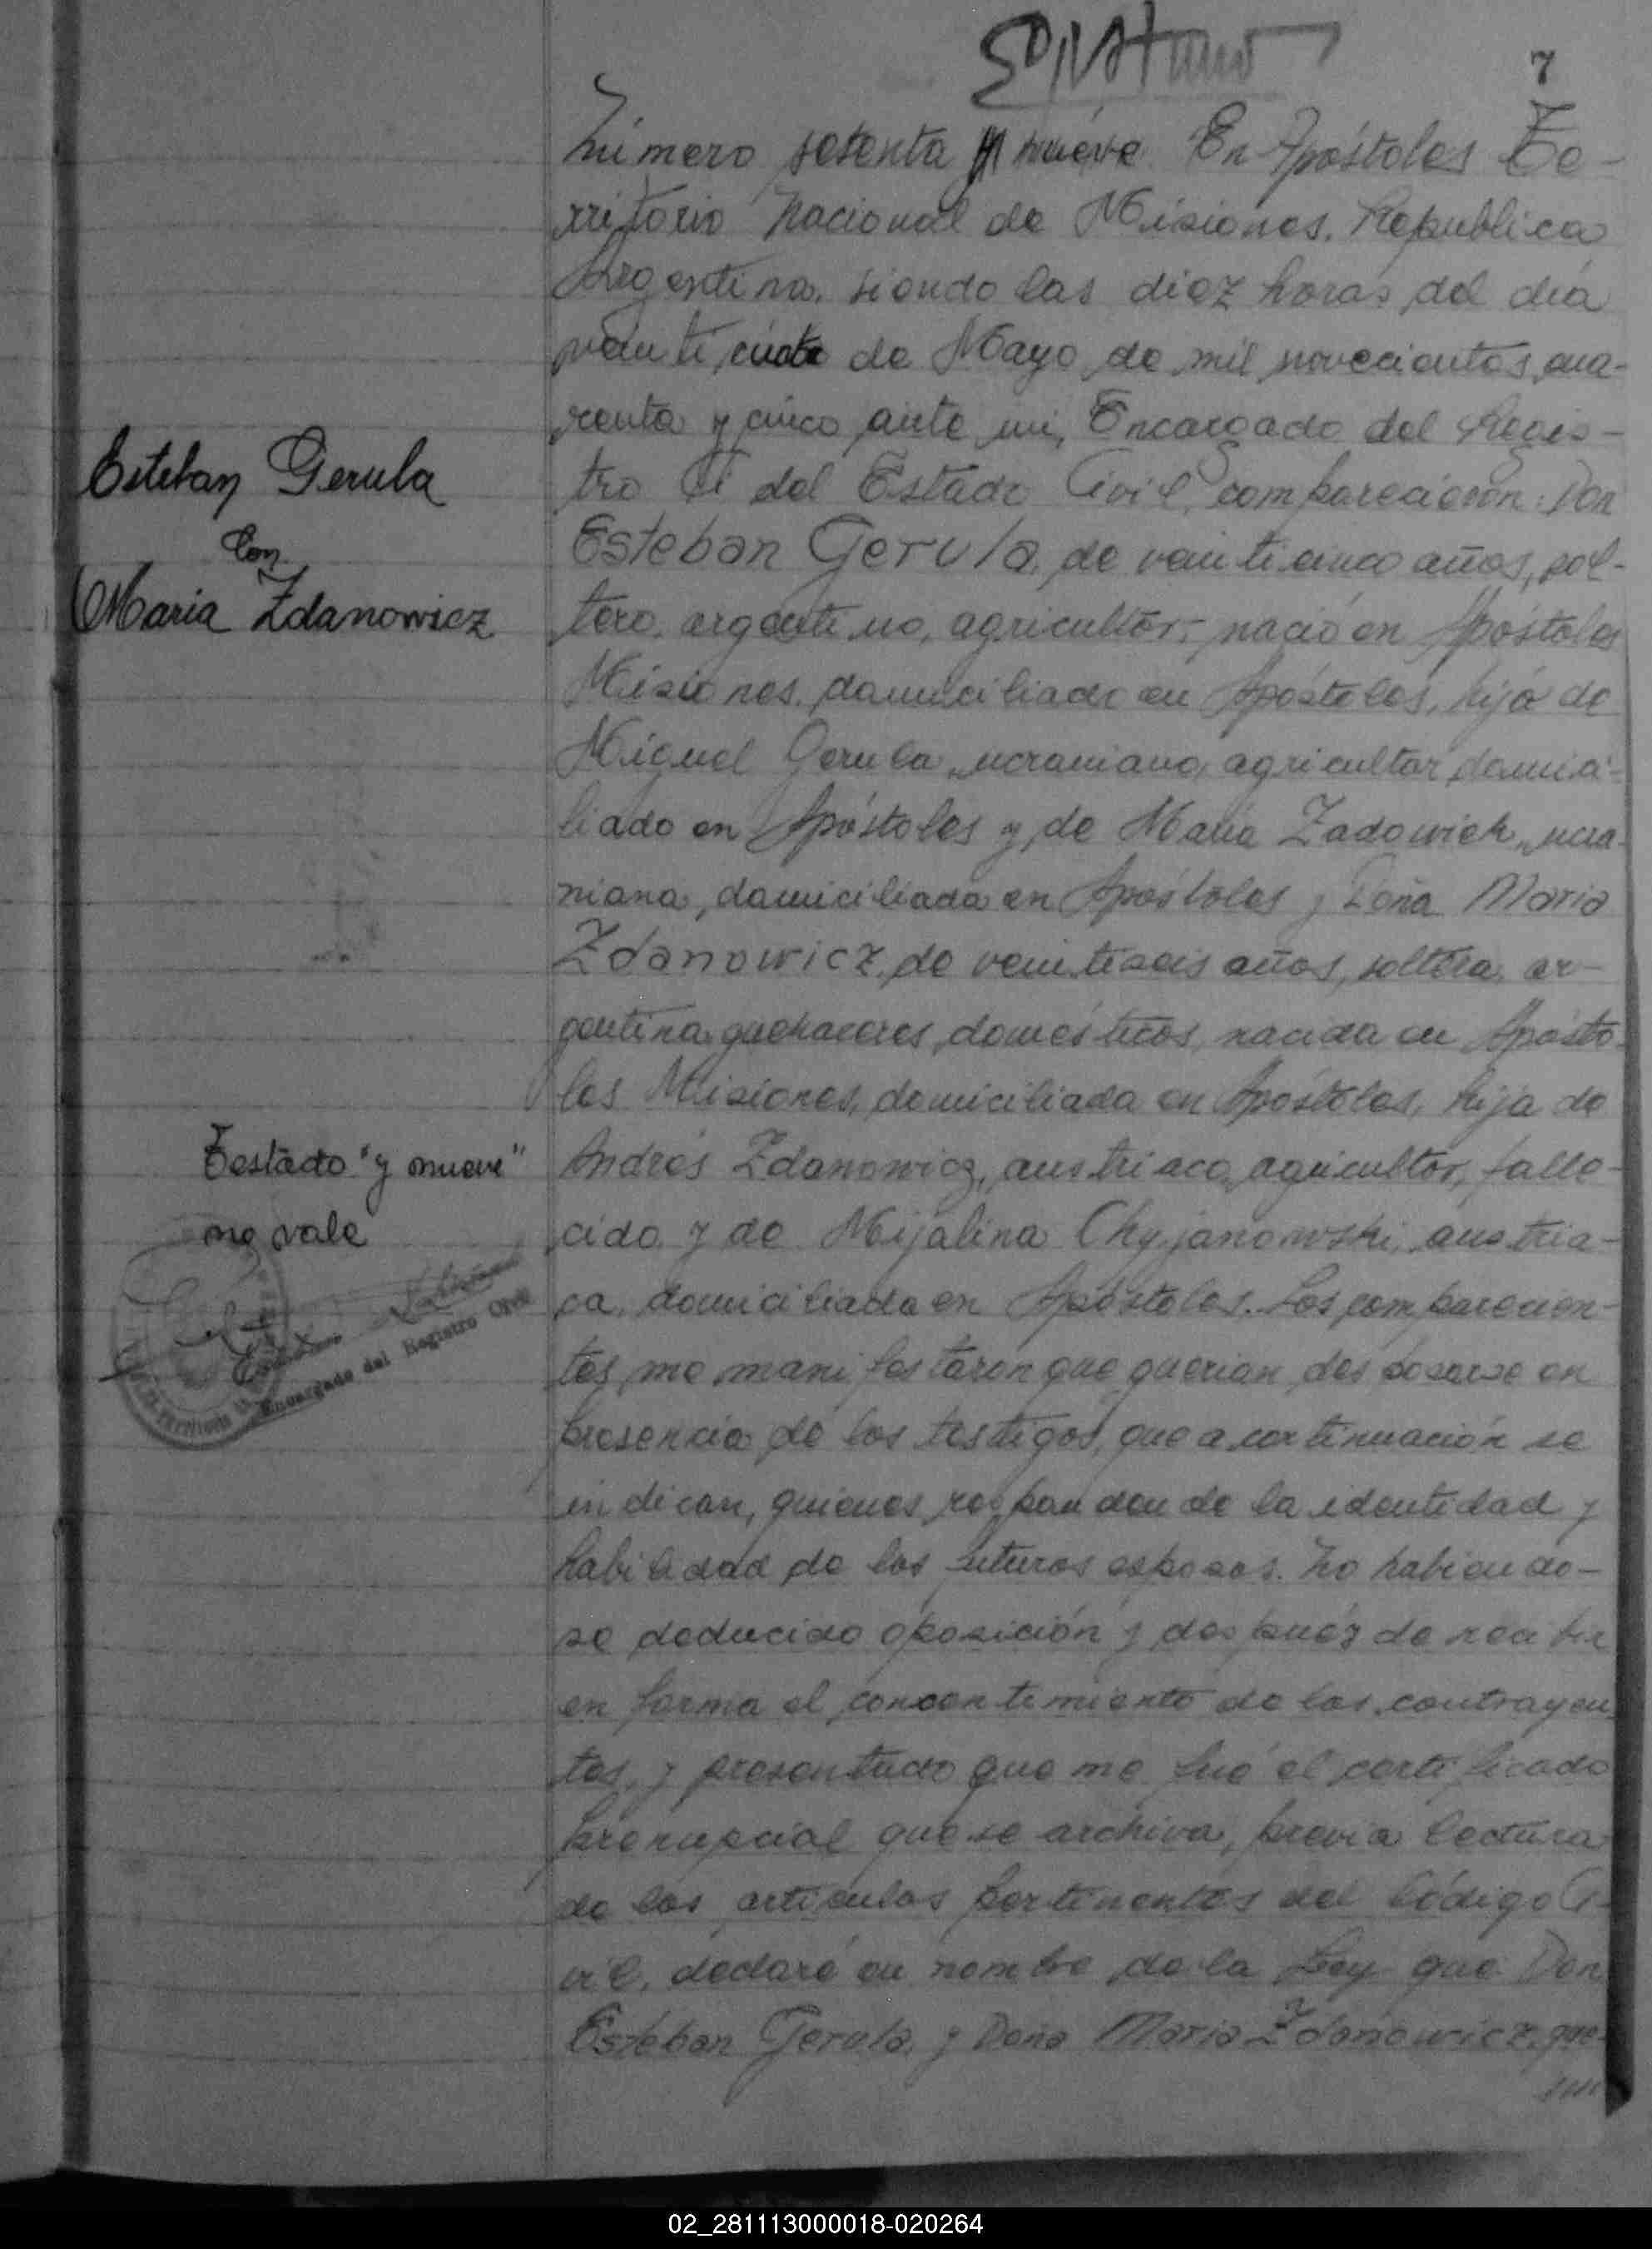 7
Número setenta y nueve En Apóstoles Te-
rritorio Nacional de Misiones. Republica
Argentina. siendo las diez horas del dia
de Mayo de mil novecientos cua-
renta y cinco ante mi, Encargado del Regis-
tro del Estado Civil, comparecieron: Don
Esteban Gerula
con
Maria Zdanowicz
Esteban Gerula, de veinticinco años, sol-
tero, argentino, agricultor, nació en Apóstoles
Misiones, domiciliado en Apóstoles, hijo de
Miguel Gerula, ucraniano, agricultor, domici-
liado en Apóstoles y de Maria Zadowich, ucra-
niana, domiciliada en Apóstoles y Doña Maria
Zdanowicz, de veintiseis años, soltera, ar-
gentina, quehaceres domésticos, nacida en Aposto-
les Misiones, domiciliada en Apóstoles, hija de
Testado "y nueve"
no vale
Encargado del Registro Civil
Andrés Zdanowicz, austriaco, agricultor, falle-
cido y de Mijalina Chyjanowski, austria-
ca, domiciliada en Apóstoles. Los comparecien-
tes me manifestaron que querian desposarse en
presencia de los testigos, que a continuación se
indican, quienes responden de la identidad y
habilidad de los futuros esposos. No habiendo-
se deducido oposición y después de recibir
en forma el consentimiento de los contrayen
tes, y presentado que me fué el certificado
prenupcial que se archiva, previa lectura
de los articulos pertinentes del Código Ci-
vil, declaré en nombre de la Ley que Don
Esteban Gerula y Doña Maria Zdanowicz, que-
02_281113000018-020264